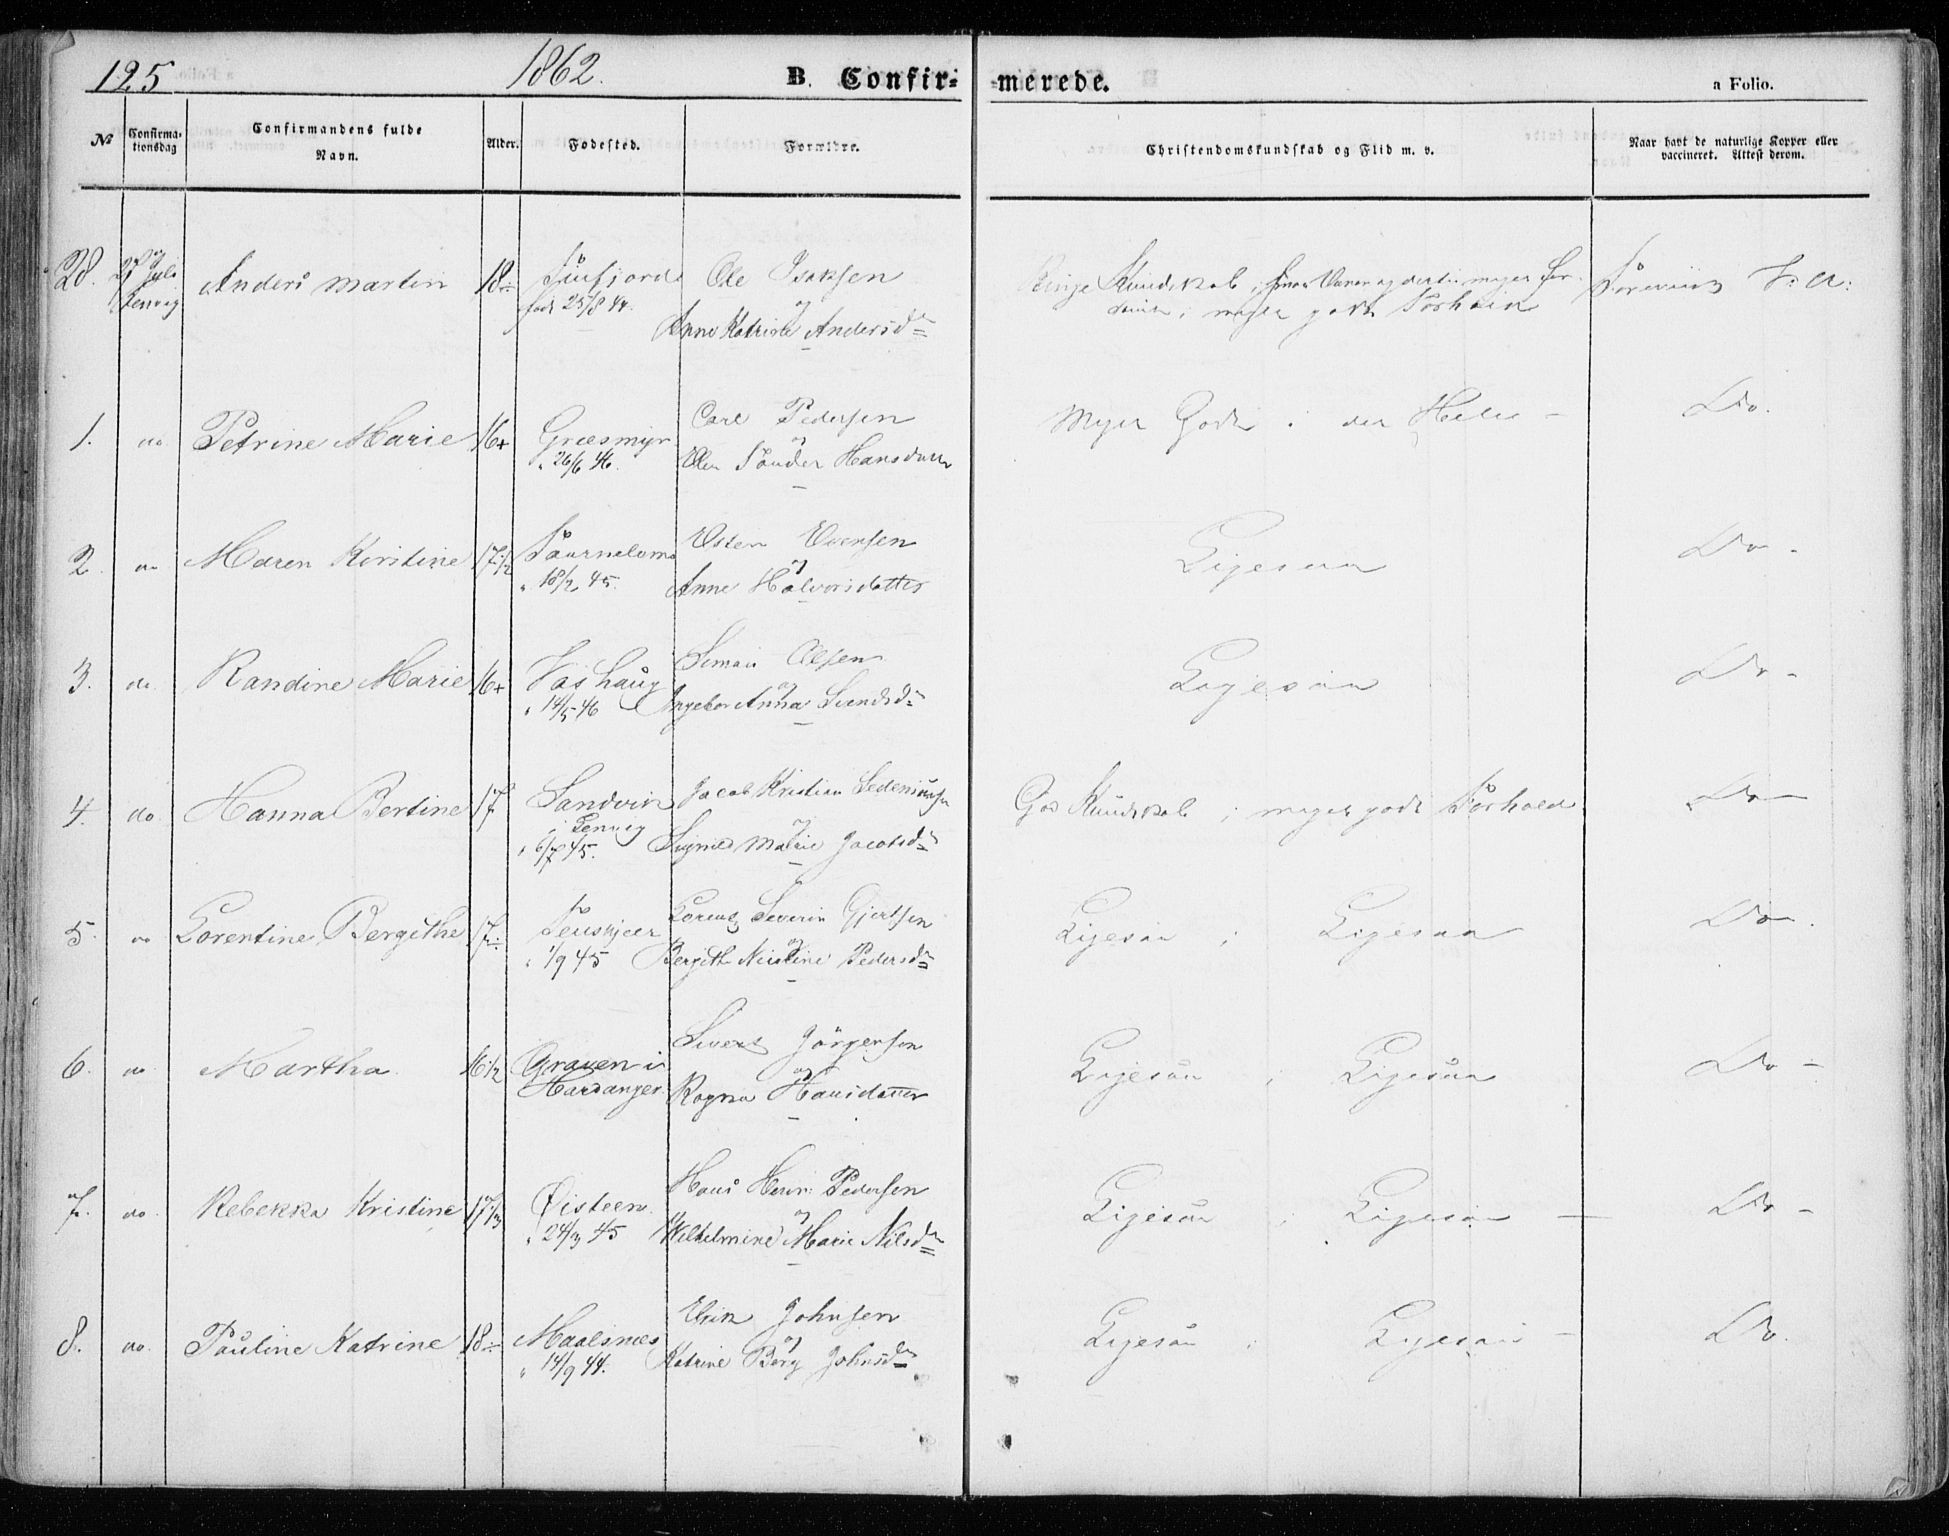 125
1862.
B. Confir-
merede.
a Folio.
№
Confirma-
tionsdag
Confirmandens fulde
Navn.
Alder.
Fødested.
Forældre.
Christendomskundskab og Flid m. v.
Naar havt de naturlige Kopper eller
vaccineret. Attest derom.
28.
Juli
Lenvig
Anders Martin
18
født 25/8 44.
Ole Isaksen
og
Anne Katrine Andersd
Kundskab
meget godt Forhold
1.
do
Petrine Marie
16+
Græsmyr
" 26/6 46.
Carl Pedersen
og
Hansdatter
Meget Godt i det Hele
Do.
2.
do
Maren Kirstine
17 1/2
" 18/2 45.
Evensen
og
Anne Halvorsdatter
Ligesaa
Do
3.
do.
Randine Marie
16+
Vashaug
" 14/5 46
Simon Olsen
og
Ingebor Anna Svendsd
Ligesaa
Do
4.
do
Hanna Bertine
17
Sandvik
i Lenvig
" 6/7 45.
Jacob Kristian
og
Marie Jacobsd
God Kundskab ; meget godt Forhold
Do
5.
do
Lorentine Bergithe
17
" 1/9 45
Lorents Severin Gjertsen
og
Pedersd
Ligesaa ; Ligesaa
Do
6.
do
Martha
16 1/2
Graven i
Hardanger
Sivert Jørgensen
og
Ragna Hansdatter
Ligesaa ; Ligesaa
Do
7.
do.
Rebekka Kristine
17 1/3
Øisteen
" 24/3 45
Hans Henr: Pedersen
og
Wilhelmine Marie Nilsd
Ligesaa ; Ligesaa
Do
8.
do.
Pauline Katrine
18
Maalsnes
" 14/9 44.
Erik Johnsen
og
Katrine Berg Johnsd
Ligesaa ; Ligesaa
Do.